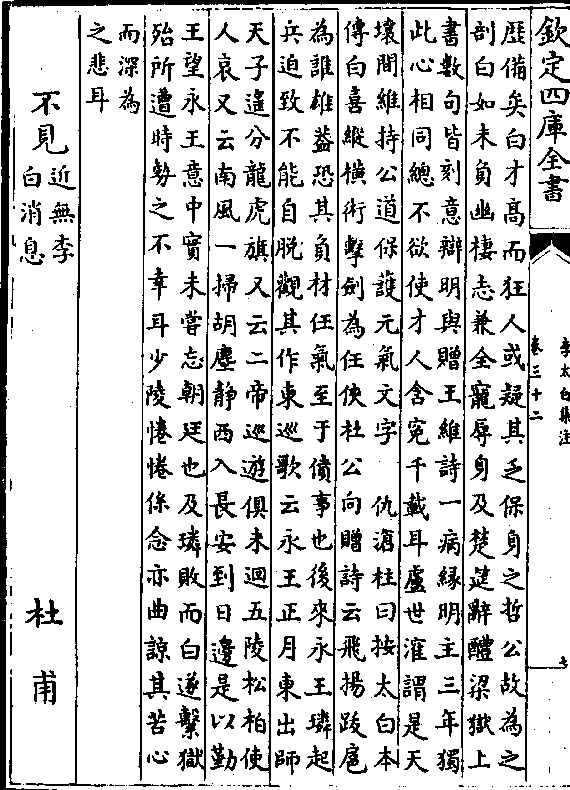 欽定四庫全書
李太白集注
卷三十二
七
歴備矣白才髙而狂人或疑其乏保身之哲公故為之
剖白如未負幽棲志兼全寵辱身及楚筵辭醴梁獄上
書數句皆刻意辯明與贈王維詩一病縁明主三年獨
此心相同總不欲使才人含寃千載耳盧世㴶謂是天
壤間維持公道保䕶元氣文字　仇滄柱曰按太白本
傳白喜縱横術擊劍為任俠杜公向贈詩云飛揚跋扈
為誰雄葢恐其負材任氣至于僨事也後來永王璘起
兵迫致不能自脱觀其作東巡歌云永王正月東出師
天子遥分龍虎旗又云二帝巡遊俱未迴五陵松柏使
人哀又云南風一掃胡塵静西入長安到日邊是以勤
王望永王意中實未嘗忘朝廷也及璘敗而白遂繫獄
殆所遭時勢之不幸耳少陵惓惓係念亦曲諒其苦心
而深為
之悲耳
不見近無李白消息
杜甫